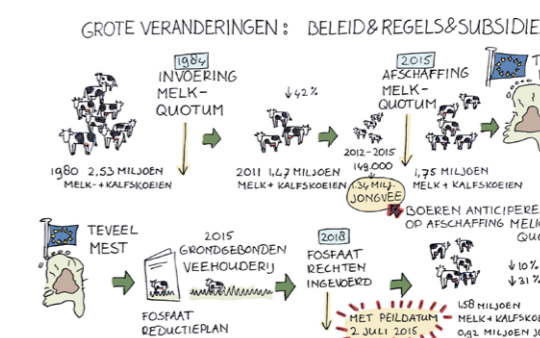 GROTE VERANDERINGEN: BELEID & REGELS & SUBSIDIE
1984
INVOERING
MELK-
QUOTUM
↓42%
2015
AFSCHAFFING
MELK-
QUOTUM
1980 2,53 MILJOEN
MELK- + KALFSKOEIEN
2011 1,47 MILJOEN
MELK + KALFSKOEIEN
2012-2015
149.000
1.34 MILJ.
JONGVEE
1,75 MILJOEN
MELK + KALFSKOEIEN
BOEREN ANTICIPERE
OP AFSCHAFFING MELK
QUO
TEVEEL
MEST
2015
GRONDGEBONDEN
VEEHOUDERIJ
FOSFAAT
REDUCTIEPLAN
2018
FOSFAAT
RECHTEN
INGEVOERD
MET PEILDATUM
2 JULI 2015
↓10%
↓31%
1,58 MILJOEN
MELK + KALFSKOE
0,92 MILJOEN JO